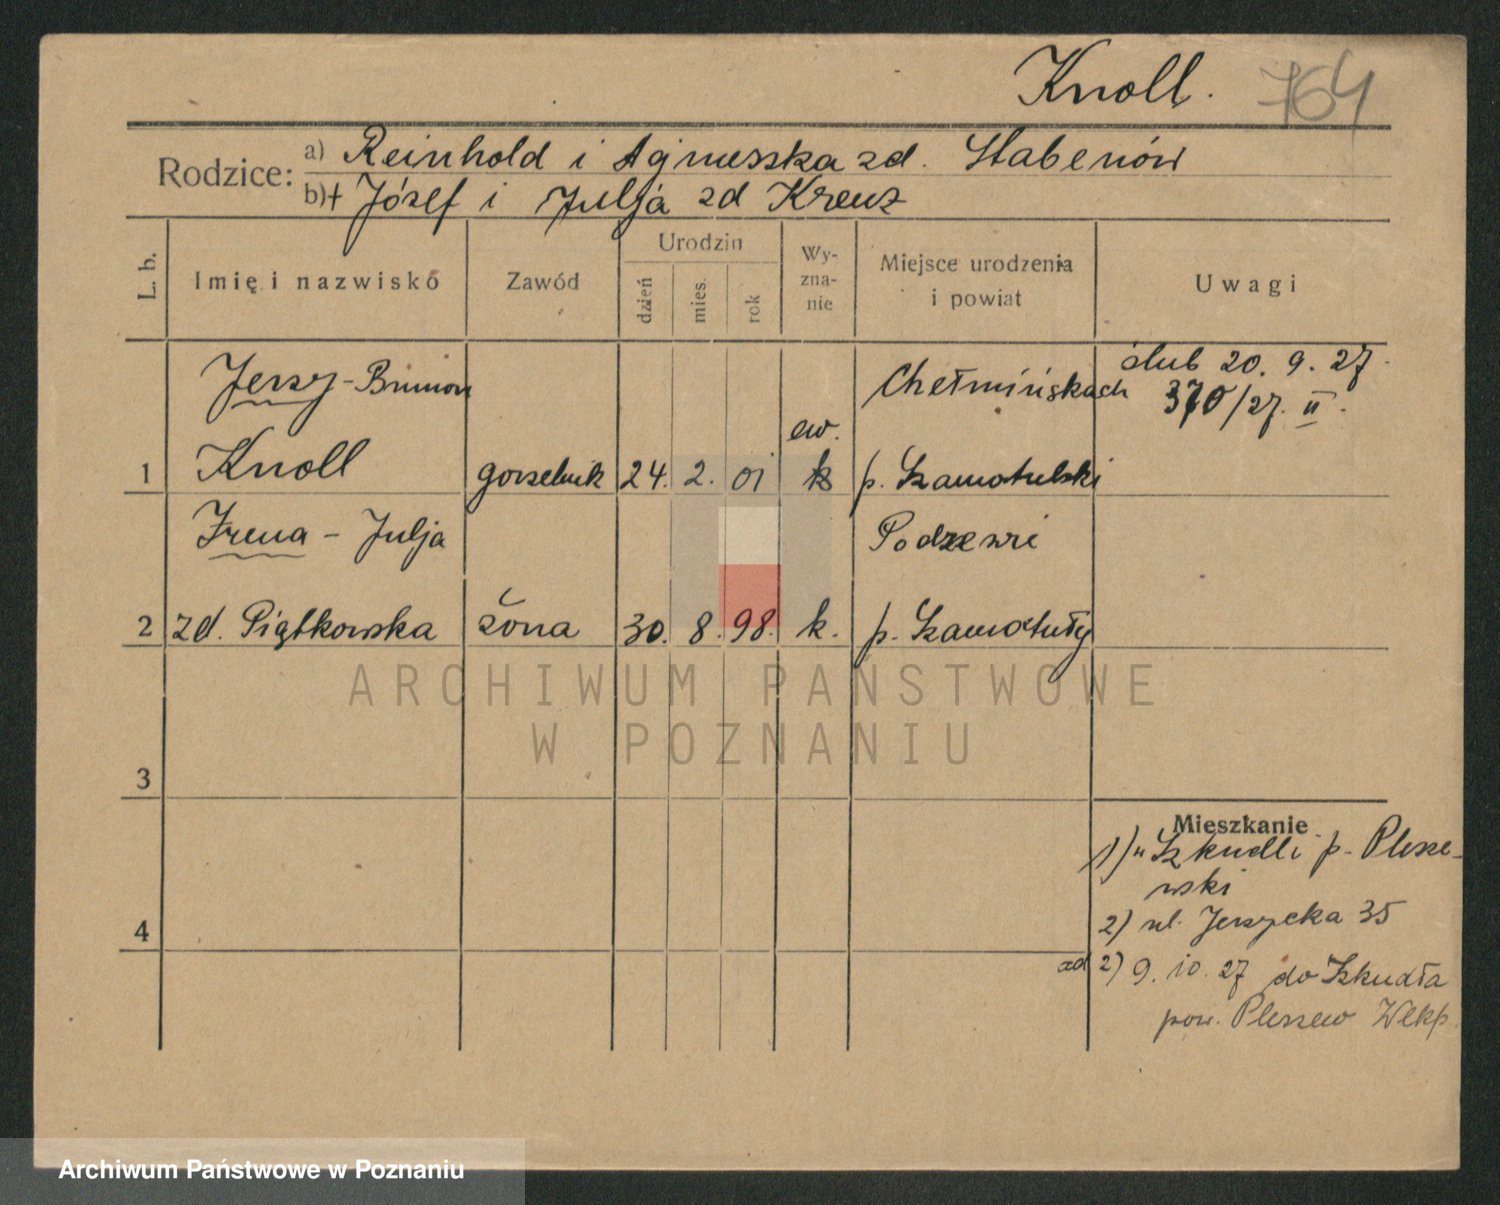 Knoll. 764
Rodzice: a) Reinhold i Agnieszka zd. Stabenów
b) + Józef i Julja zd Kreuz
L. b. Imię i nazwisko Zawód Urodzin dzień mies. rok Wy-zna-nie Miejsce urodzenia i powiat Uwagi
Jerzy - Brunon Chełmińskach ślub 20. 9. 27
ew. 370/27. II.
1 Knoll gorzelnik 24. 2. 01 k p. Szamotulski
Irena - Julja Podrzewri
2 zd. Piątkowska żona 30. 8. 98. k. p. Szamotuły
ARCHIWUM PAŃSTWOWE
W POZNANIU
3
Mieszkanie
1) w Szkudli p. Plesze-
wski
4 2) ul. Jerzycka 35
ad 2) 9. 10. 27 do Szkudła
pow. Pleszew Wlkp.
Archiwum Państwowe w Poznaniu